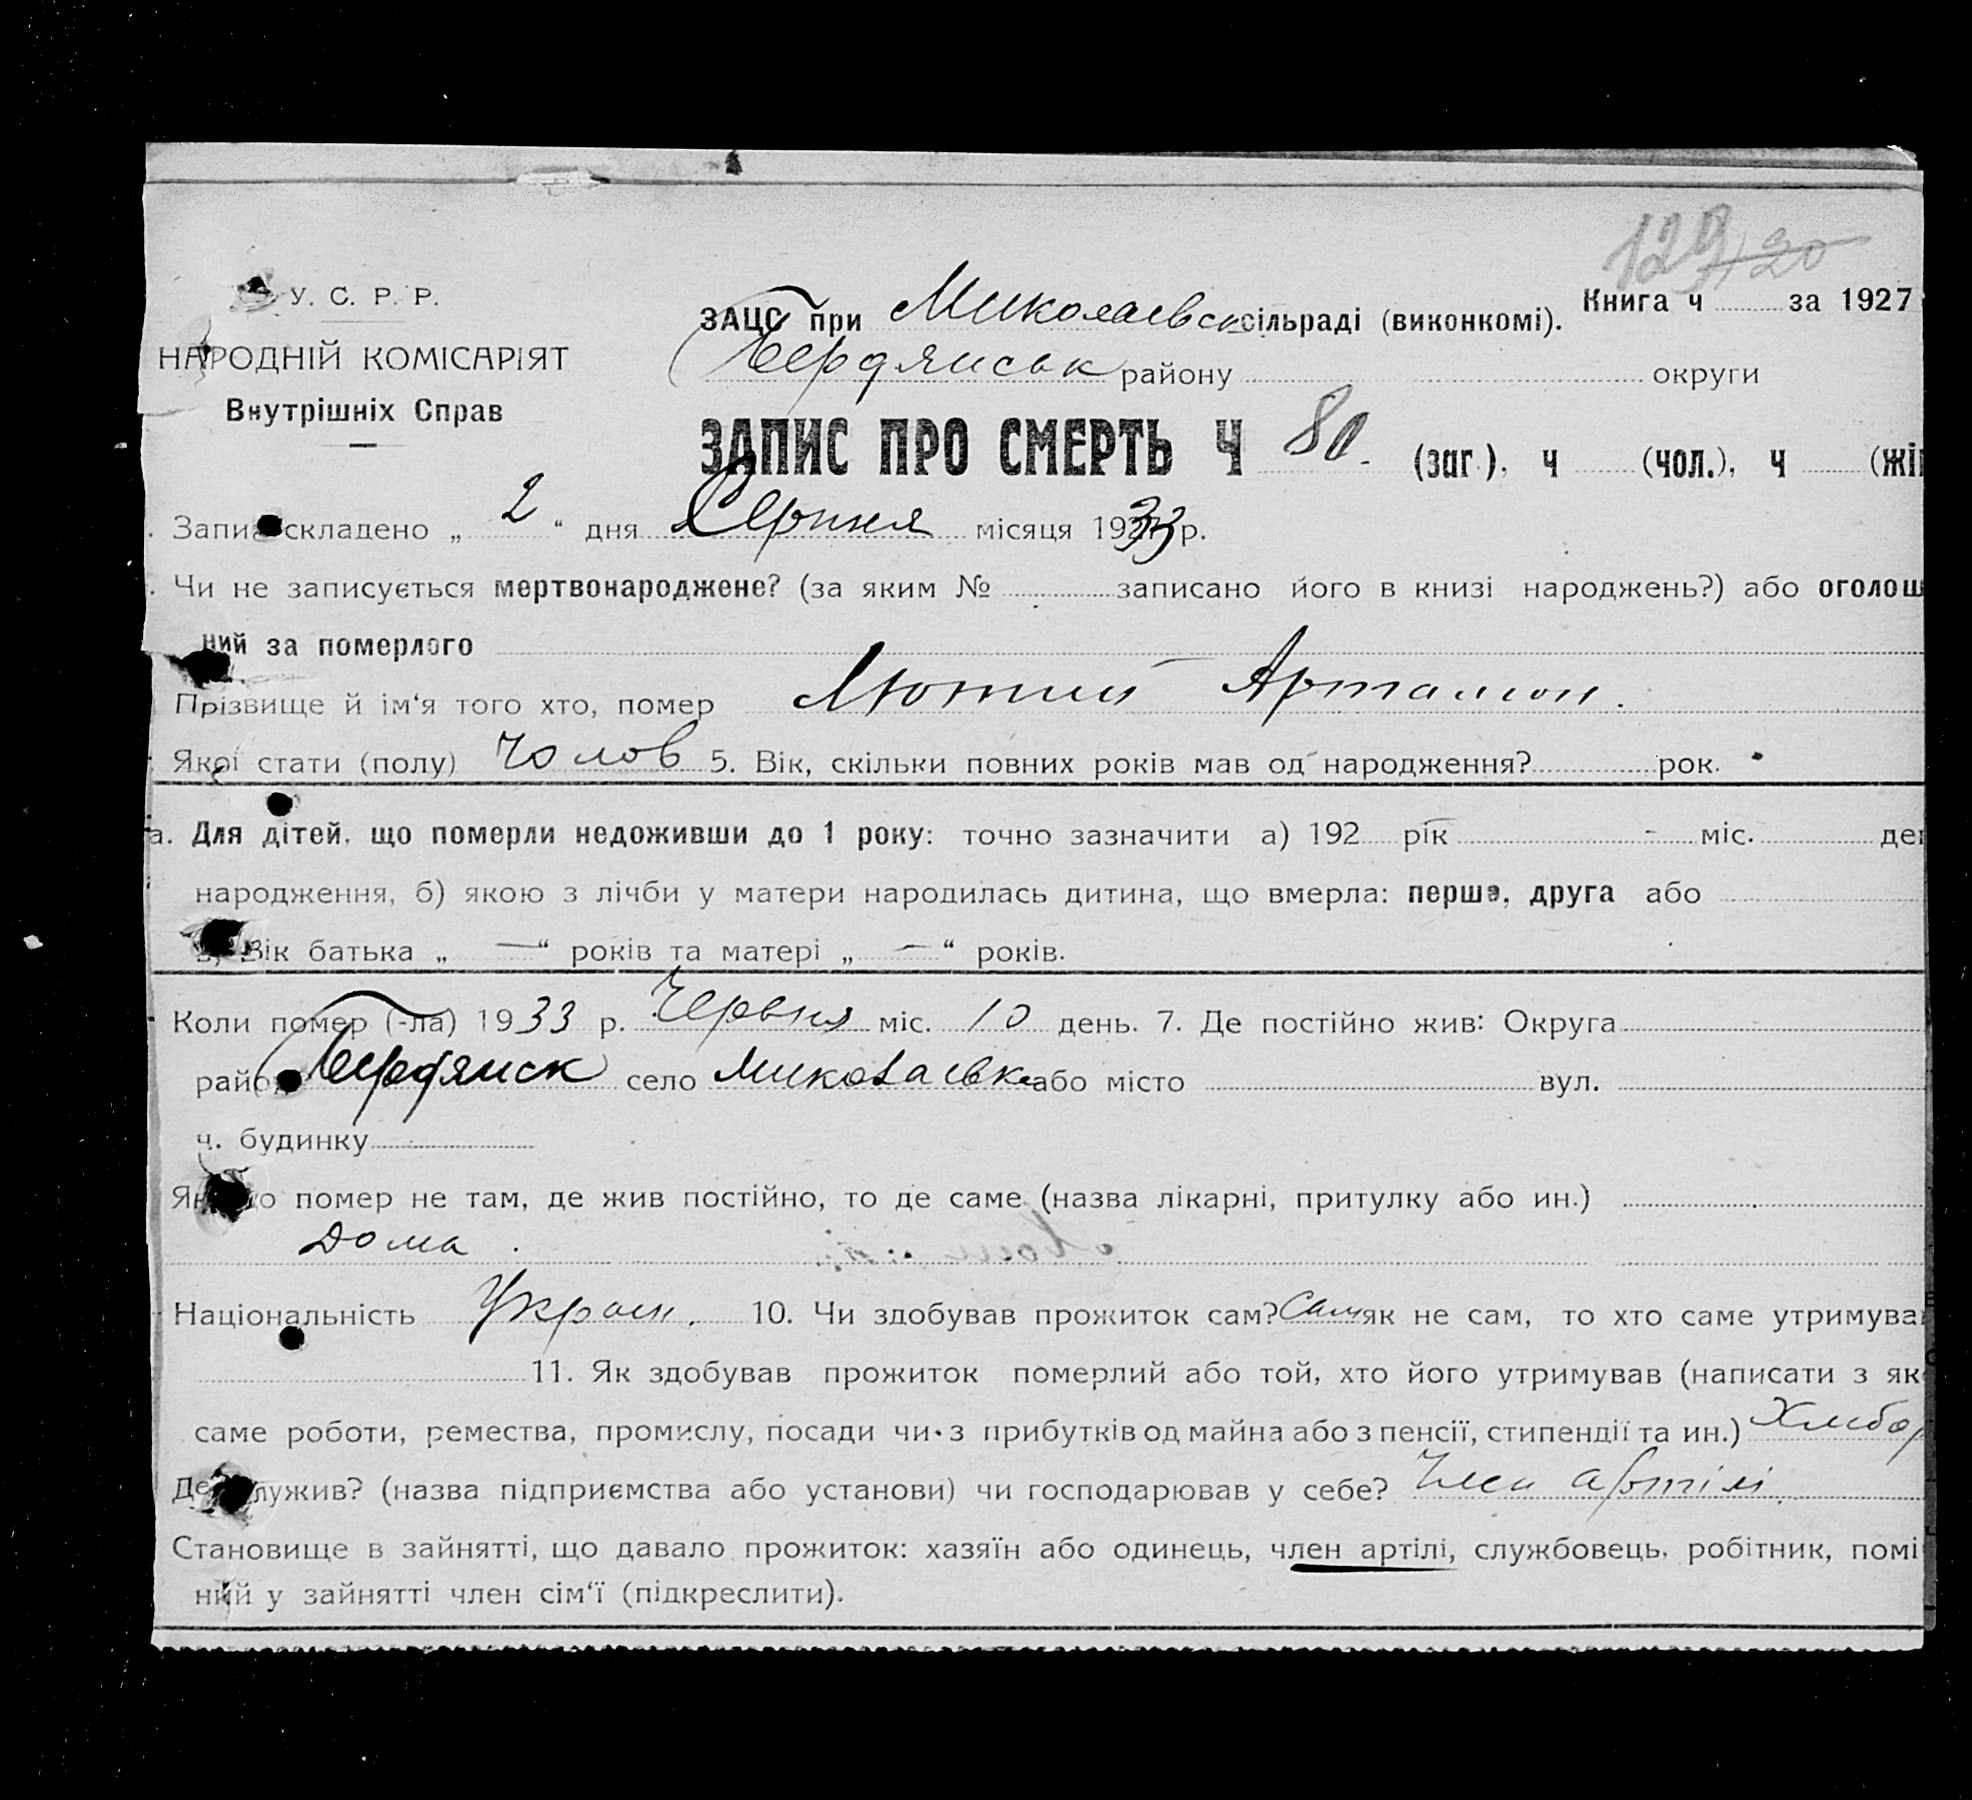 129 20
У. С. Р. Р.
НАРОДНІЙ КОМІСАРІЯТ
Внутрішніх Справ
Книга ч за 1927
ЗАЦС при Миколаевск сільраді (виконкомі).
Бердянськ району округи
ЗАПИС ПРО СМЕРТЬ Ч 80. (заг.), ч (чол.), ч (жін
Запис складено „ 2 “ дня Серпня місяця 1933 р.
Чи не записується мертвонароджене? (за яким № записано його в книзі народжень?) або оголош
ний за померлого
Прізвище й ім‘я того хто, помер Лютий Артамон.
Якої стати (полу) Чолов 5. Вік, скільки повних років мав од народження? рок.
а. Для дітей, що померли недоживши до 1 року: точно зазначити а) 192 рік - міс. ден
народження, б) якою з лічби у матери народилась дитина, що вмерла: перша, друга або
в) Вік батька „ — “ років та матері „ — “ років.
Коли помер (-ла) 1933 р. Червня міс. 10 день. 7. Де постійно жив: Округа
район Бердянск село Миколаевка або місто вул.
ч. будинку
Якщо помер не там, де жив постійно, то де саме (назва лікарні, притулку або ин.)
Дома.
Національність Украин. 10. Чи здобував прожиток сам? Сам як не сам, то хто саме утримував
11. Як здобував прожиток померлий або той, хто його утримував (написати з як
саме роботи, ремества, промислу, посади чи з прибутків од майна або з пенсії, стипендії та ин.) Хлибор
Де служив? (назва підприємства або установи) чи господарював у себе? Член артілі.
Становище в зайнятті, що давало прожиток: хазяїн або одинець, член артілі, службовець, робітник, помі
ний у зайнятті член сім‘ї (підкреслити).